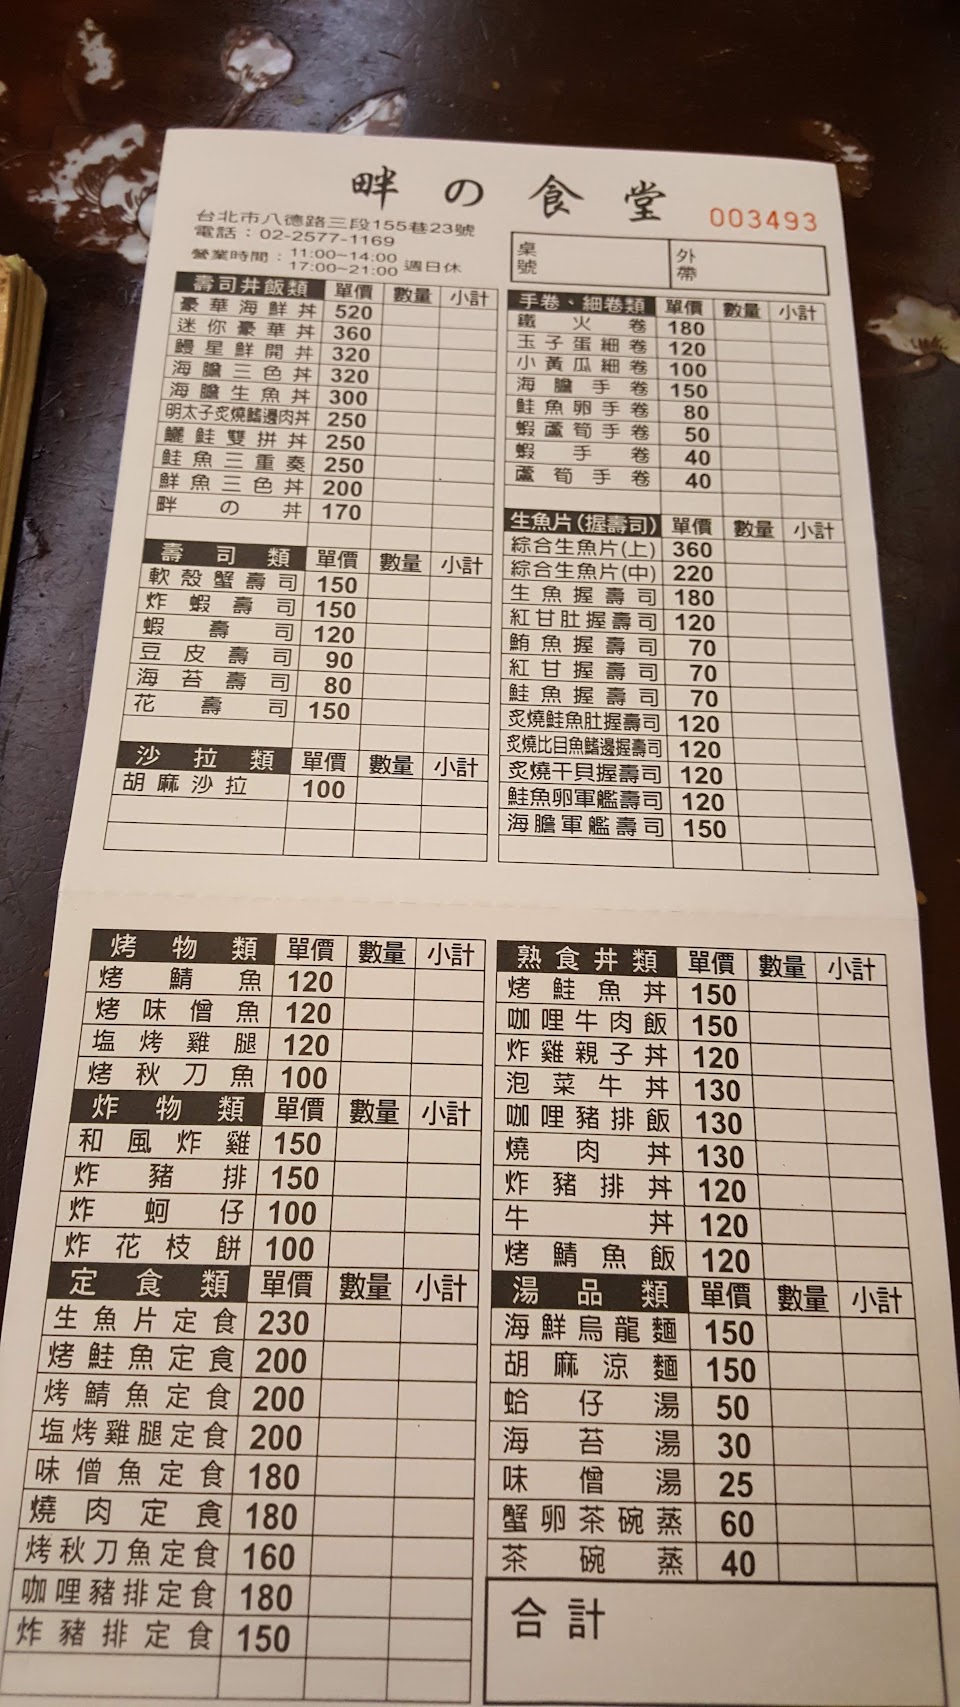 畔の食堂
003493
台北市八德路三段155巷23號
電話：02-2577-1169
營業時間：11:00~14:00
17:00~21:00 週日休
桌號
外帶
壽司丼飯類 單價 數量 小計
豪華海鮮丼 520
迷你豪華丼 360
鰻星鮮開丼 320
海膽三色丼 320
海膽生魚丼 300
明太子炙燒鰭邊肉丼 250
鱺鮭雙拼丼 250
鮭魚三重奏 250
鮮魚三色丼 200
畔の丼 170
壽司類 單價 數量 小計
軟殼蟹壽司 150
炸蝦壽司 150
蝦壽司 120
豆皮壽司 90
海苔壽司 80
花壽司 150
沙拉類 單價 數量 小計
胡麻沙拉 100
手卷、細卷類 單價 數量 小計
鐵火卷 180
玉子蛋細卷 120
小黃瓜細卷 100
海膽手卷 150
鮭魚卵手卷 80
蝦蘆筍手卷 50
蝦手卷 40
蘆筍手卷 40
生魚片(握壽司) 單價 數量 小計
綜合生魚片(上) 360
綜合生魚片(中) 220
生魚握壽司 180
紅甘肚握壽司 120
鮪魚握壽司 70
紅甘握壽司 70
鮭魚握壽司 70
炙燒鮭魚肚握壽司 120
炙燒比目魚鰭邊握壽司 120
炙燒干貝握壽司 120
鮭魚卵軍艦壽司 120
海膽軍艦壽司 150
烤物類 單價 數量 小計
烤鯖魚 120
烤味僧魚 120
塩烤雞腿 120
烤秋刀魚 100
炸物類 單價 數量 小計
和風炸雞 150
炸豬排 150
炸蚵仔 100
炸花枝餅 100
定食類 單價 數量 小計
生魚片定食 230
烤鮭魚定食 200
烤鯖魚定食 200
塩烤雞腿定食 200
味僧魚定食 180
燒肉定食 180
烤秋刀魚定食 160
咖哩豬排定食 180
炸豬排定食 150
熟食丼類 單價 數量 小計
烤鮭魚丼 150
咖哩牛肉飯 150
炸雞親子丼 120
泡菜牛丼 130
咖哩豬排飯 130
燒肉丼 130
炸豬排丼 120
牛丼 120
烤鯖魚飯 120
湯品類 單價 數量 小計
海鮮烏龍麵 150
胡麻涼麵 150
蛤仔湯 50
海苔湯 30
味僧湯 25
蟹卵茶碗蒸 60
茶碗蒸 40
合計